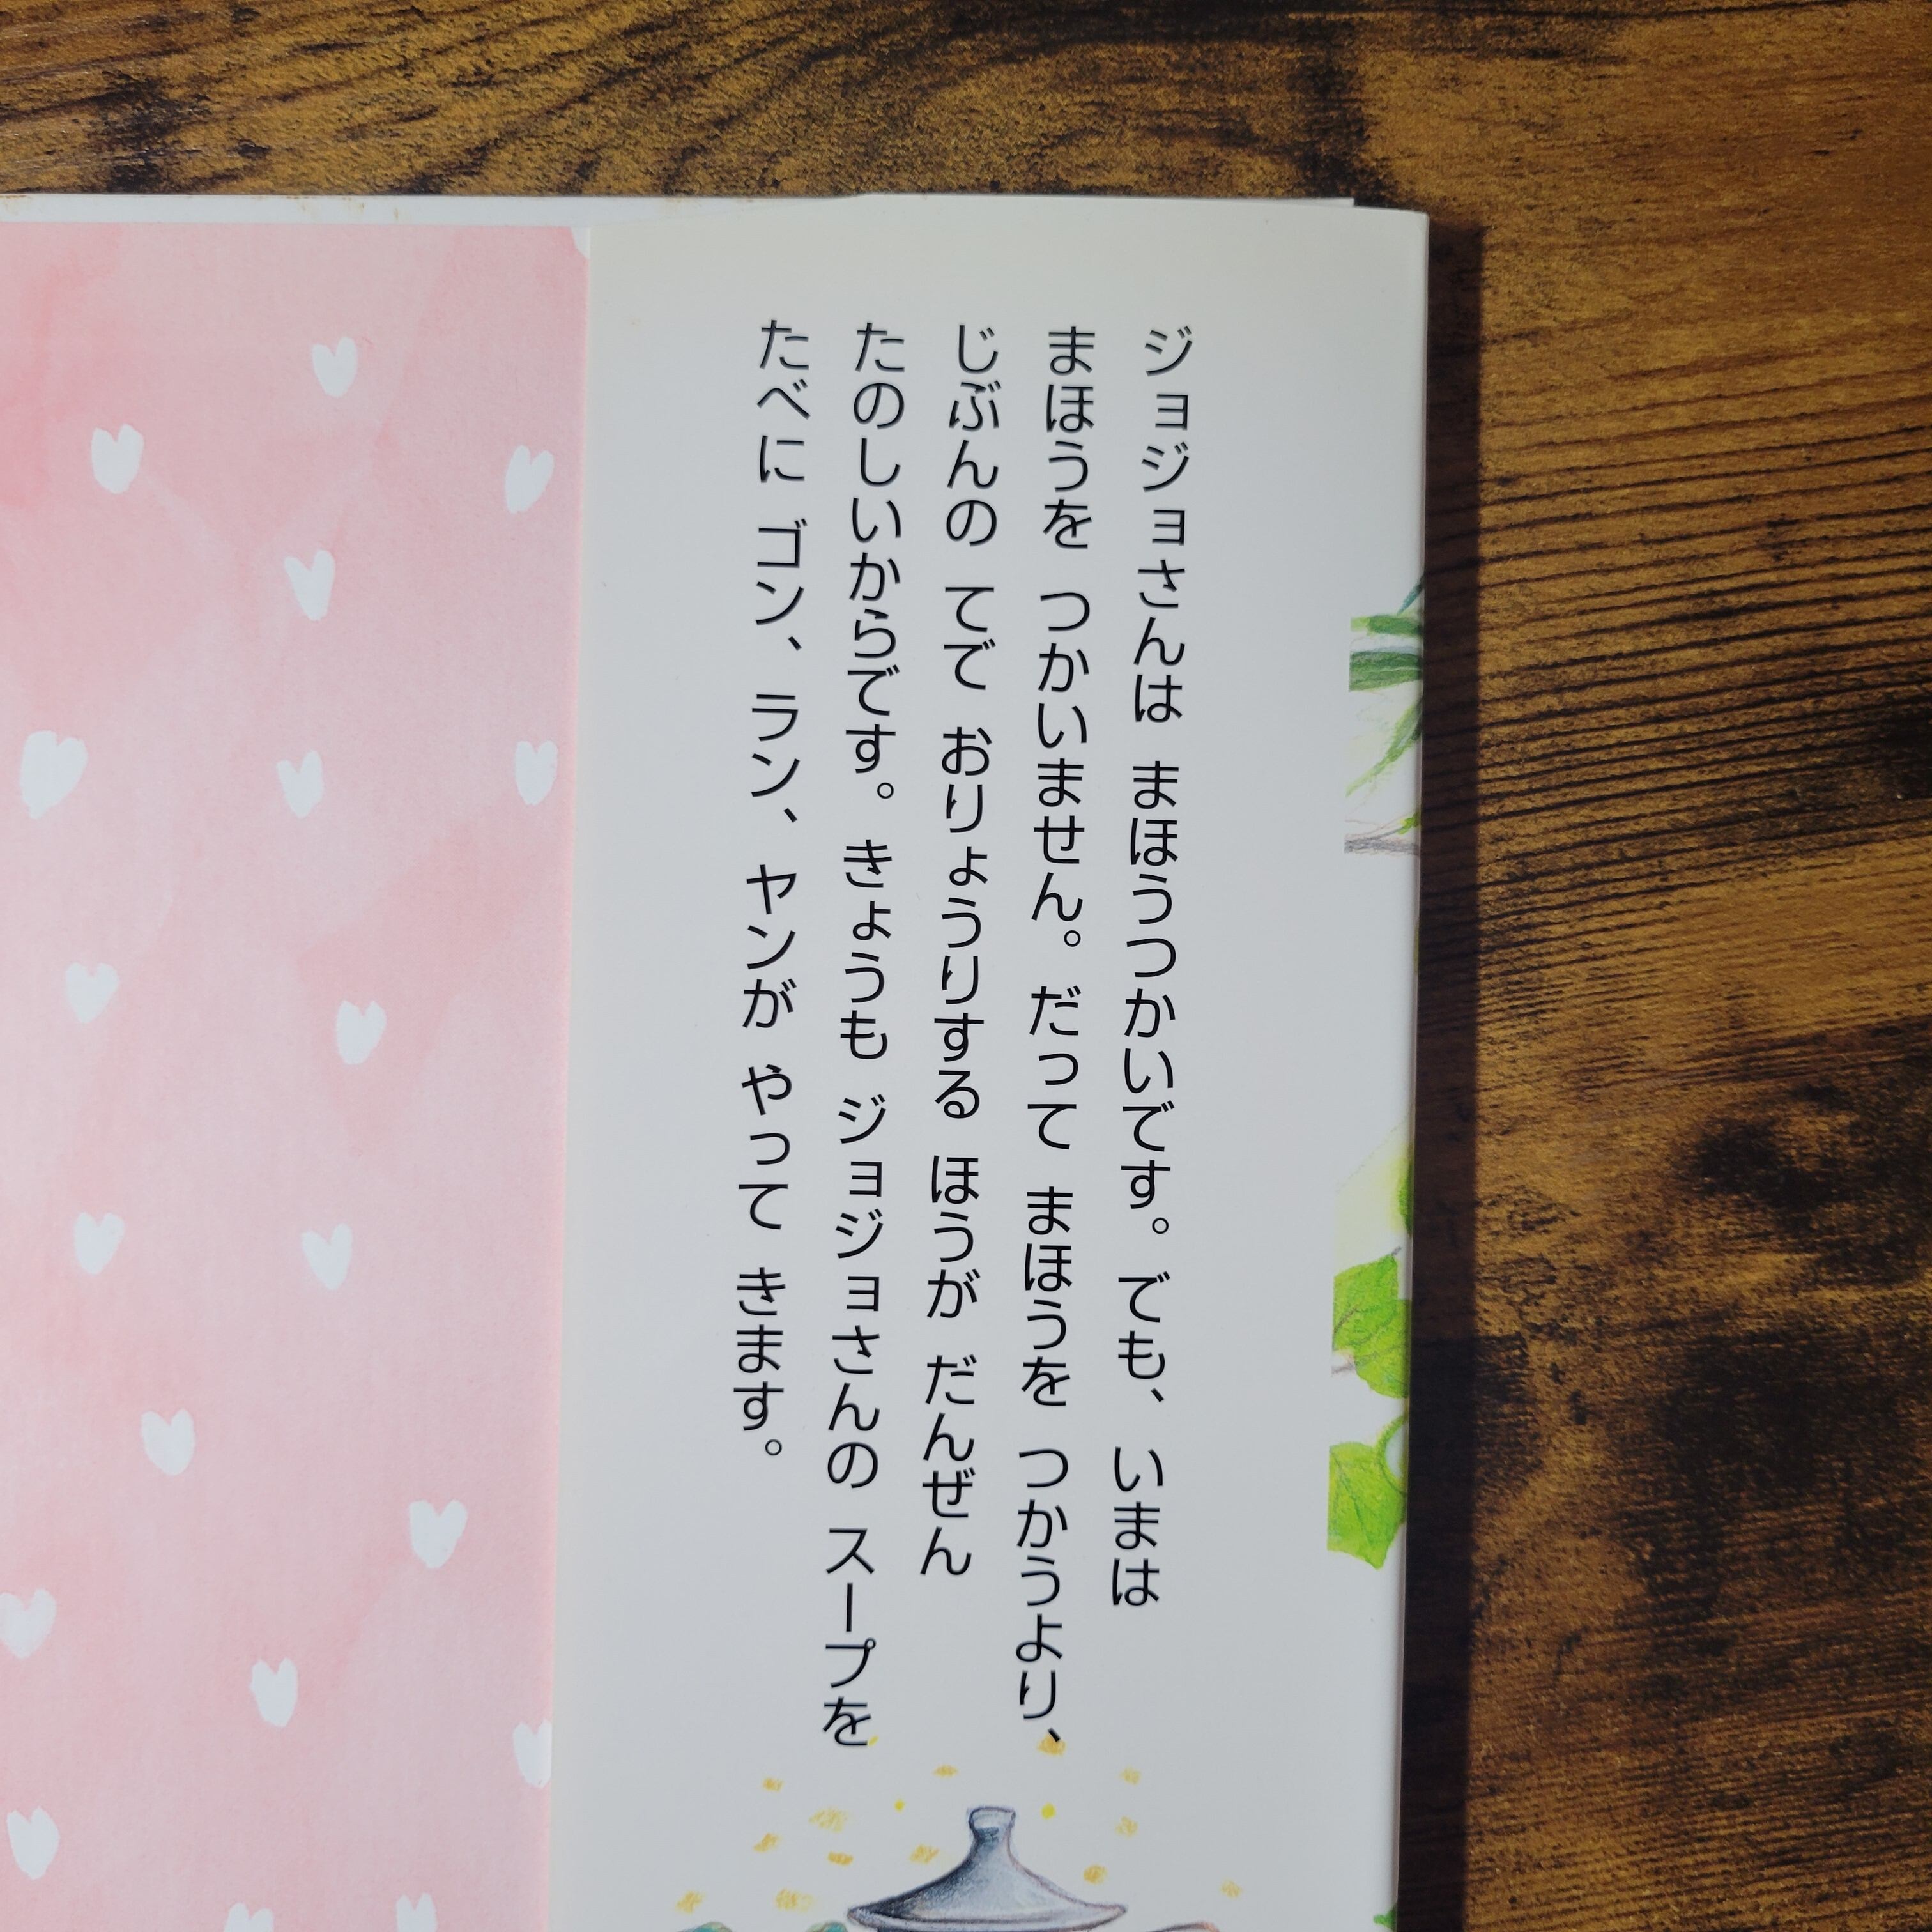 ジョジョさんは まほうつかいです。でも、いまは
まほうを つかいません。だって まほうを つかうより、
じぶんの てで おりょうりする ほうが だんぜん
たのしいからです。きょうも ジョジョさんの スープを
たべに ゴン、ラン、ヤンが やって きます。